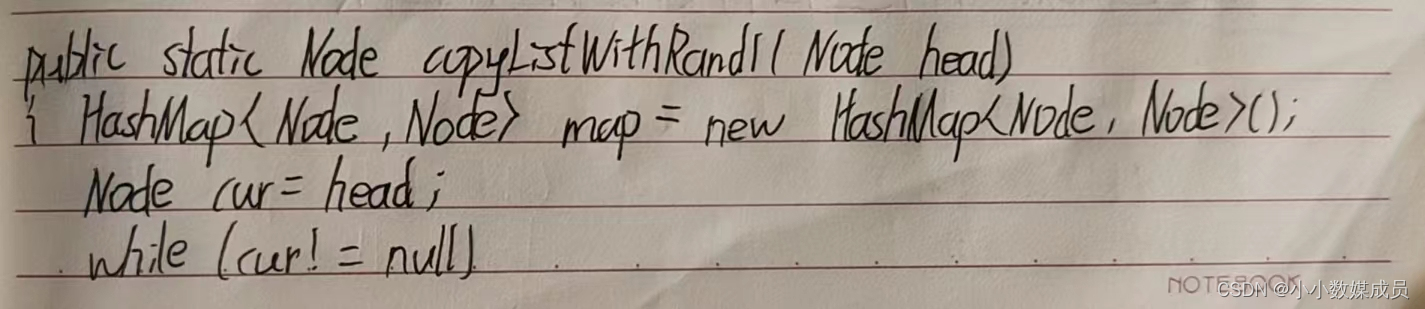 public static Node copyListWithRand1( Node head)
{ HashMap<Node, Node> map = new HashMap<Node, Node>();
Node cur = head;
while (cur! = null)
NOTEBOOK
CSDN @小小数媒成员